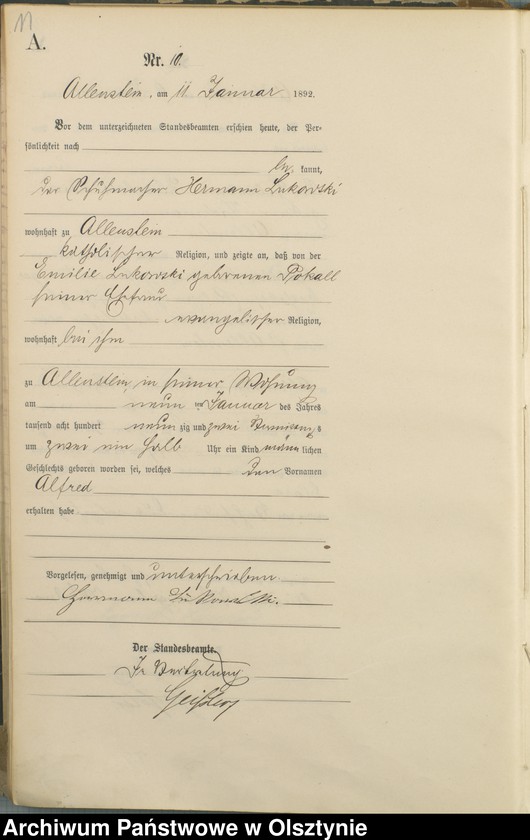 11
A.
Nr. 10.
Allenstein, am 11 Januar 1892.
Vor dem unterzeichneten Standesbeamten erschien heute, der Per=
sönlichkeit nach
be kannt,
der Schuhmacher Hermann Lukowski
wohnhaft zu Allenstein
katholischer Religion, und zeigte an, daß von der
Emilie Lukowski geborenen Pokall
seiner Ehefrau
evangelischer Religion,
wohnhaft bei ihm
zu Allenstein, in seiner Wohnung
am neun ten Januar des Jahres
tausend acht hundert neun zig und zwei Vormittags
um zwei ein halb Uhr ein Kind männ lichen
Geschlechts geboren worden sei, welches den Vornamen
Alfred
erhalten habe
Vorgelesen, genehmigt und unterschrieben.
Hermann Lukowski.
Der Standesbeamte.
In Vertretung
Archiwum Państwowe w Olsztynie